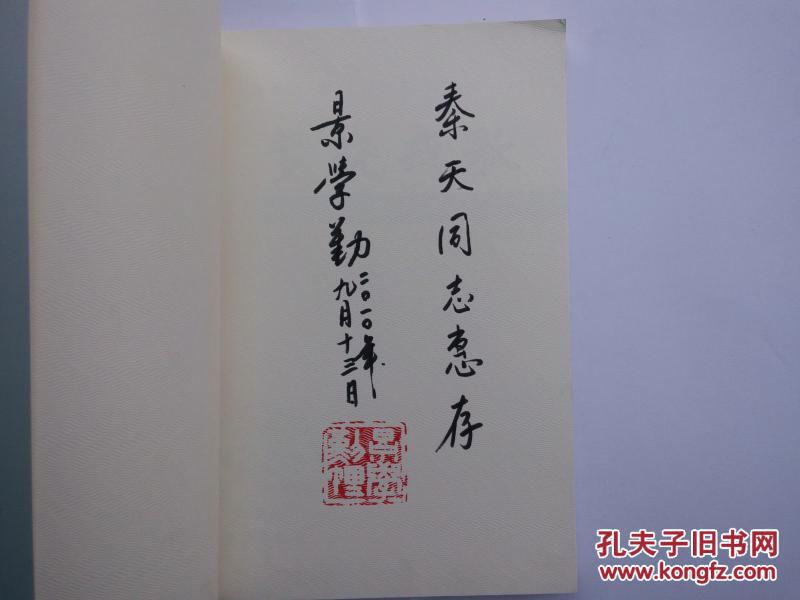 秦天同志惠存
景學勤
二〇一〇年
九月十三日
景學
勤
孔夫子旧书网
www.kongfz.com